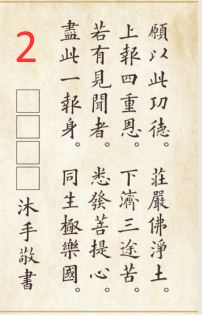 願以此功德。莊嚴佛淨土。
上報四重恩。下濟三途苦。
若有見聞者。悉發菩提心。
盡此一報身。同生極樂國。
2
沐手敬書